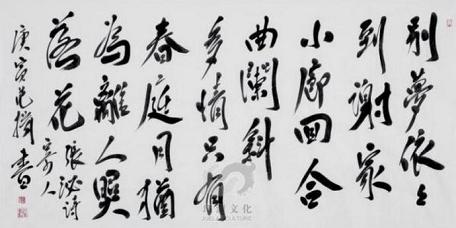 别夢依々
到謝家
小廊回合
曲闌斜
多情只有
春庭月猶
為離人照
落花
張泌詩
寄人
庚寅
書
文化
CULTURE